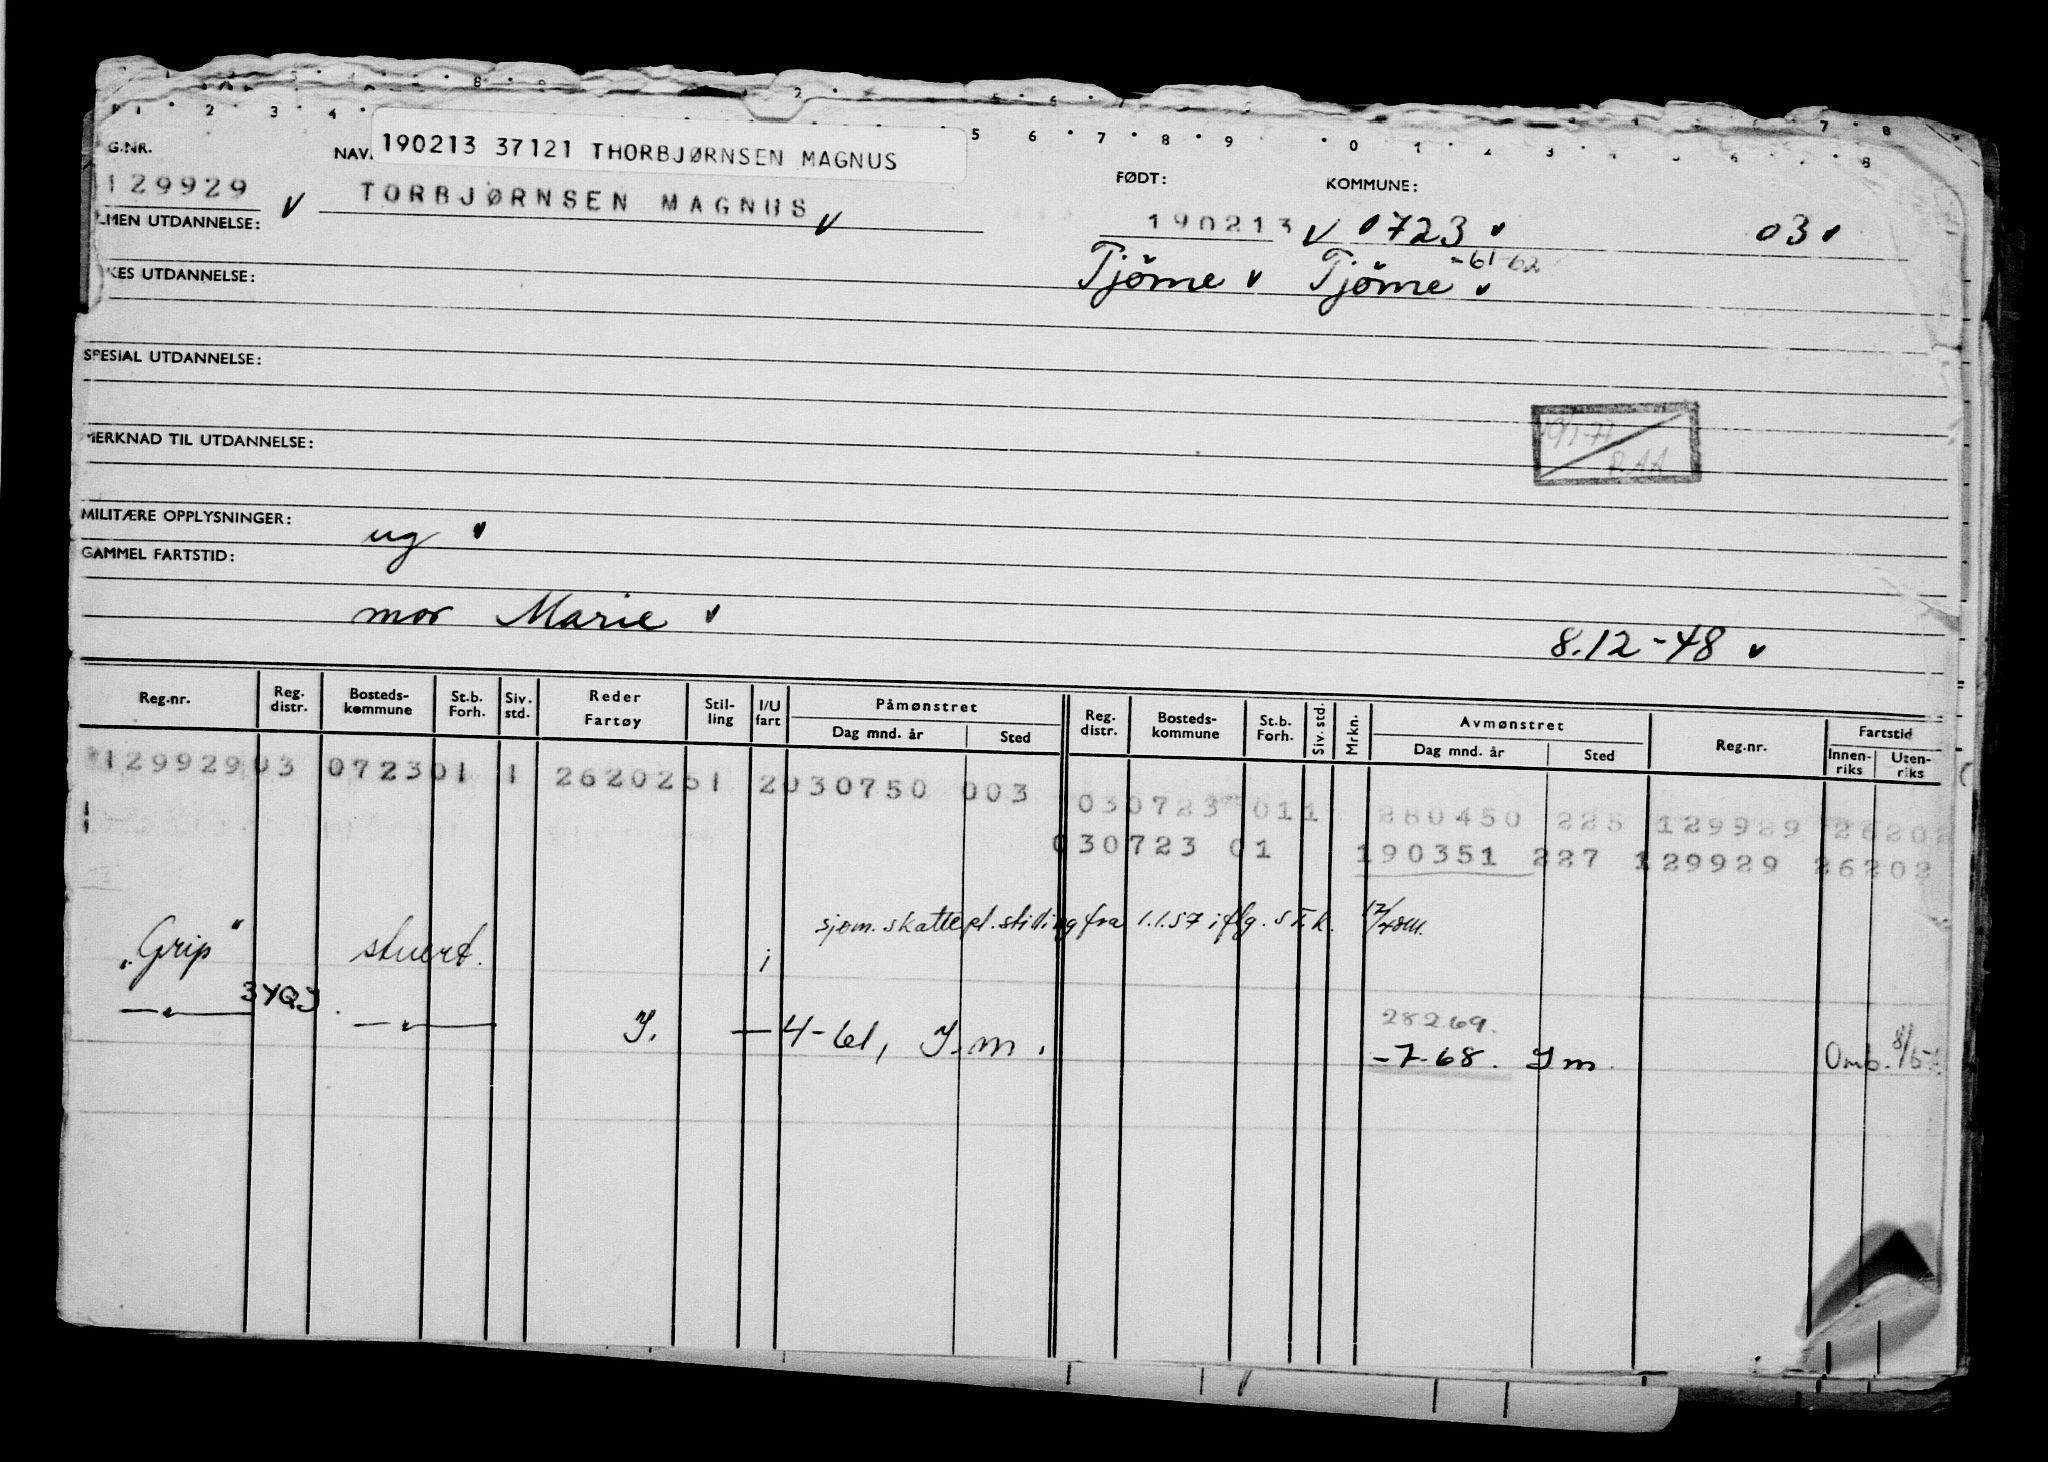 190213 37121 THORBJØRNSEN MAGNUS
G.NR. NAV FØDT: KOMMUNE:
129929 v TORBJØRNSEN MAGNUS v 190213 v 0723 v 03 v
LMEN UTDANNELSE:
Tjöme v Tjöme v -61-62
KES UTDANNELSE:
SPESIAL UTDANNELSE:
MERKNAD TIL UTDANNELSE:
R.AA
MILITÆRE OPPLYSNINGER: ug v
GAMMEL FARTSTID:
mor Marie v
8.12-48 v
Reg.nr. Reg. distr. Bosteds-kommune St.b. Forh. Siv. std. Reder Fartøy Stil-ling I/U fart Påmønstret Dag mnd. år Sted Reg. distr. Bosteds-kommune St.b. Forh. Siv. std. Mrkn. Avmønstret Dag mnd. år Sted Reg.nr. Fartstid Innen-riks Uten-riks
129929 03 0723 01 1 2620251 2 030750 003
030723 011 280450 225 129929 26202
030723 01 190351 227 129929 26202
sjøm.skattepl.stilling fra 1.1.57 iflg. S.T.k.
"Grip" stuert. i
—"— 3YQJ —"— Y. —4-61, Y.m.
28269.
-7-68. Ym. Omb. 8/